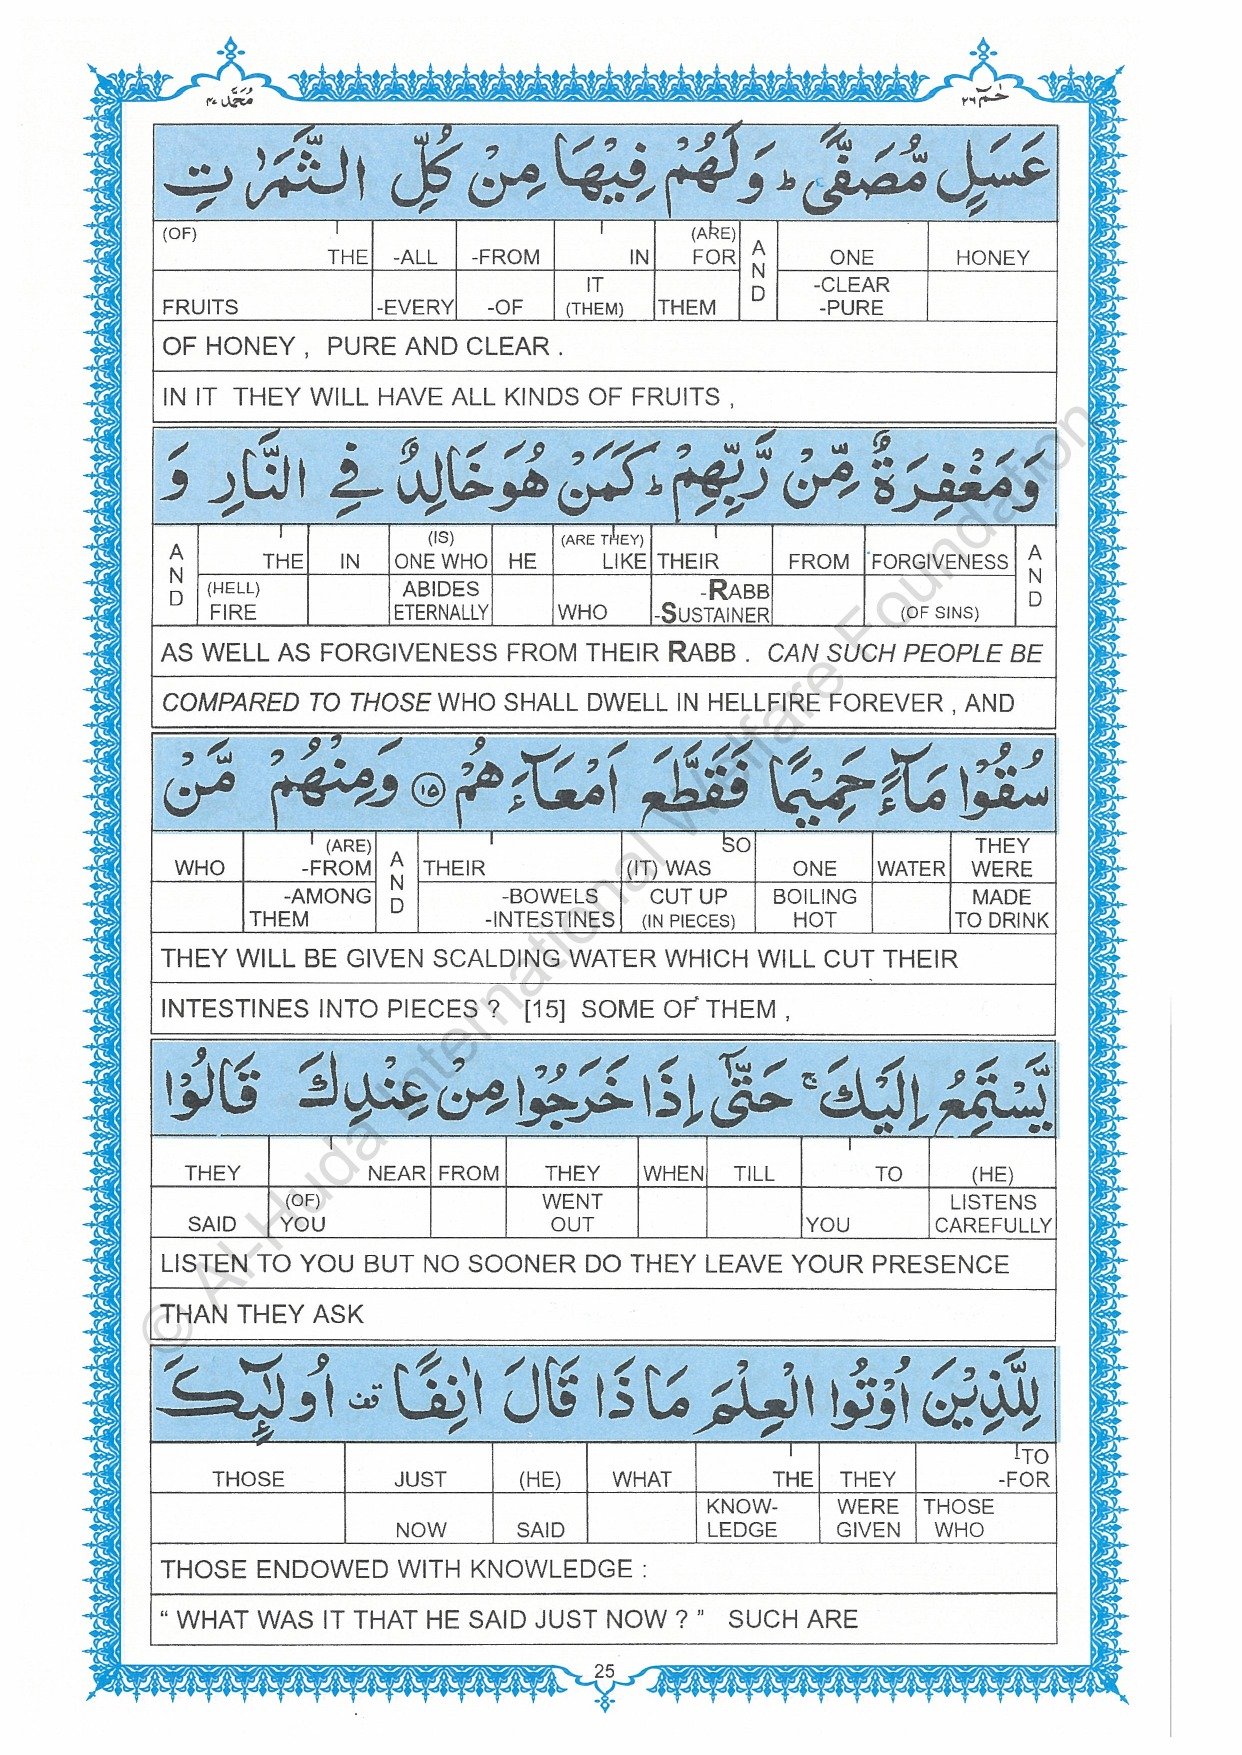 محمد ٤٧
حم ٢٦
عَسَلٍ مُّصَفًّى ؕ وَلَهُمْ فِيْهَا مِنْ كُلِّ الثَّمَرٰتِ
(OF) THE -ALL -FROM IN (ARE) FOR AND ONE HONEY
FRUITS -EVERY -OF IT (THEM) THEM -CLEAR -PURE
OF HONEY , PURE AND CLEAR .
IN IT THEY WILL HAVE ALL KINDS OF FRUITS ,
وَمَغْفِرَةٌ مِّنْ رَّبِّهِمْ ؕ كَمَنْ هُوَ خَالِدٌ فِي النَّارِ وَ
AND THE IN (IS) ONE WHO HE (ARE THEY) LIKE THEIR FROM FORGIVENESS AND
(HELL) FIRE ABIDES ETERNALLY WHO -RABB -SUSTAINER (OF SINS)
AS WELL AS FORGIVENESS FROM THEIR RABB . CAN SUCH PEOPLE BE
COMPARED TO THOSE WHO SHALL DWELL IN HELLFIRE FOREVER , AND
سُقُوْا مَآءً حَمِيْمًا فَقَطَّعَ اَمْعَآءَهُمْ ١٥ وَمِنْهُمْ مَّنْ
WHO (ARE) -FROM AND THEIR SO (IT) WAS ONE WATER THEY WERE
-AMONG THEM -BOWELS -INTESTINES CUT UP (IN PIECES) BOILING HOT MADE TO DRINK
THEY WILL BE GIVEN SCALDING WATER WHICH WILL CUT THEIR
INTESTINES INTO PIECES ? [15] SOME OF THEM ,
يَّسْتَمِعُ اِلَيْكَ ۚ حَتّٰۤى اِذَا خَرَجُوْا مِنْ عِنْدِكَ قَالُوْا
THEY NEAR FROM THEY WHEN TILL TO (HE)
SAID (OF) YOU WENT OUT YOU LISTENS CAREFULLY
LISTEN TO YOU BUT NO SOONER DO THEY LEAVE YOUR PRESENCE
THAN THEY ASK
لِلَّذِيْنَ اُوْتُوا الْعِلْمَ مَاذَا قَالَ اٰنِفًا قف اُولٰٓئِكَ
THOSE JUST (HE) WHAT THE THEY -TO -FOR
NOW SAID KNOW- LEDGE WERE GIVEN THOSE WHO
THOSE ENDOWED WITH KNOWLEDGE :
“ WHAT WAS IT THAT HE SAID JUST NOW ? ” SUCH ARE
25
© Al-Huda International Welfare Foundation